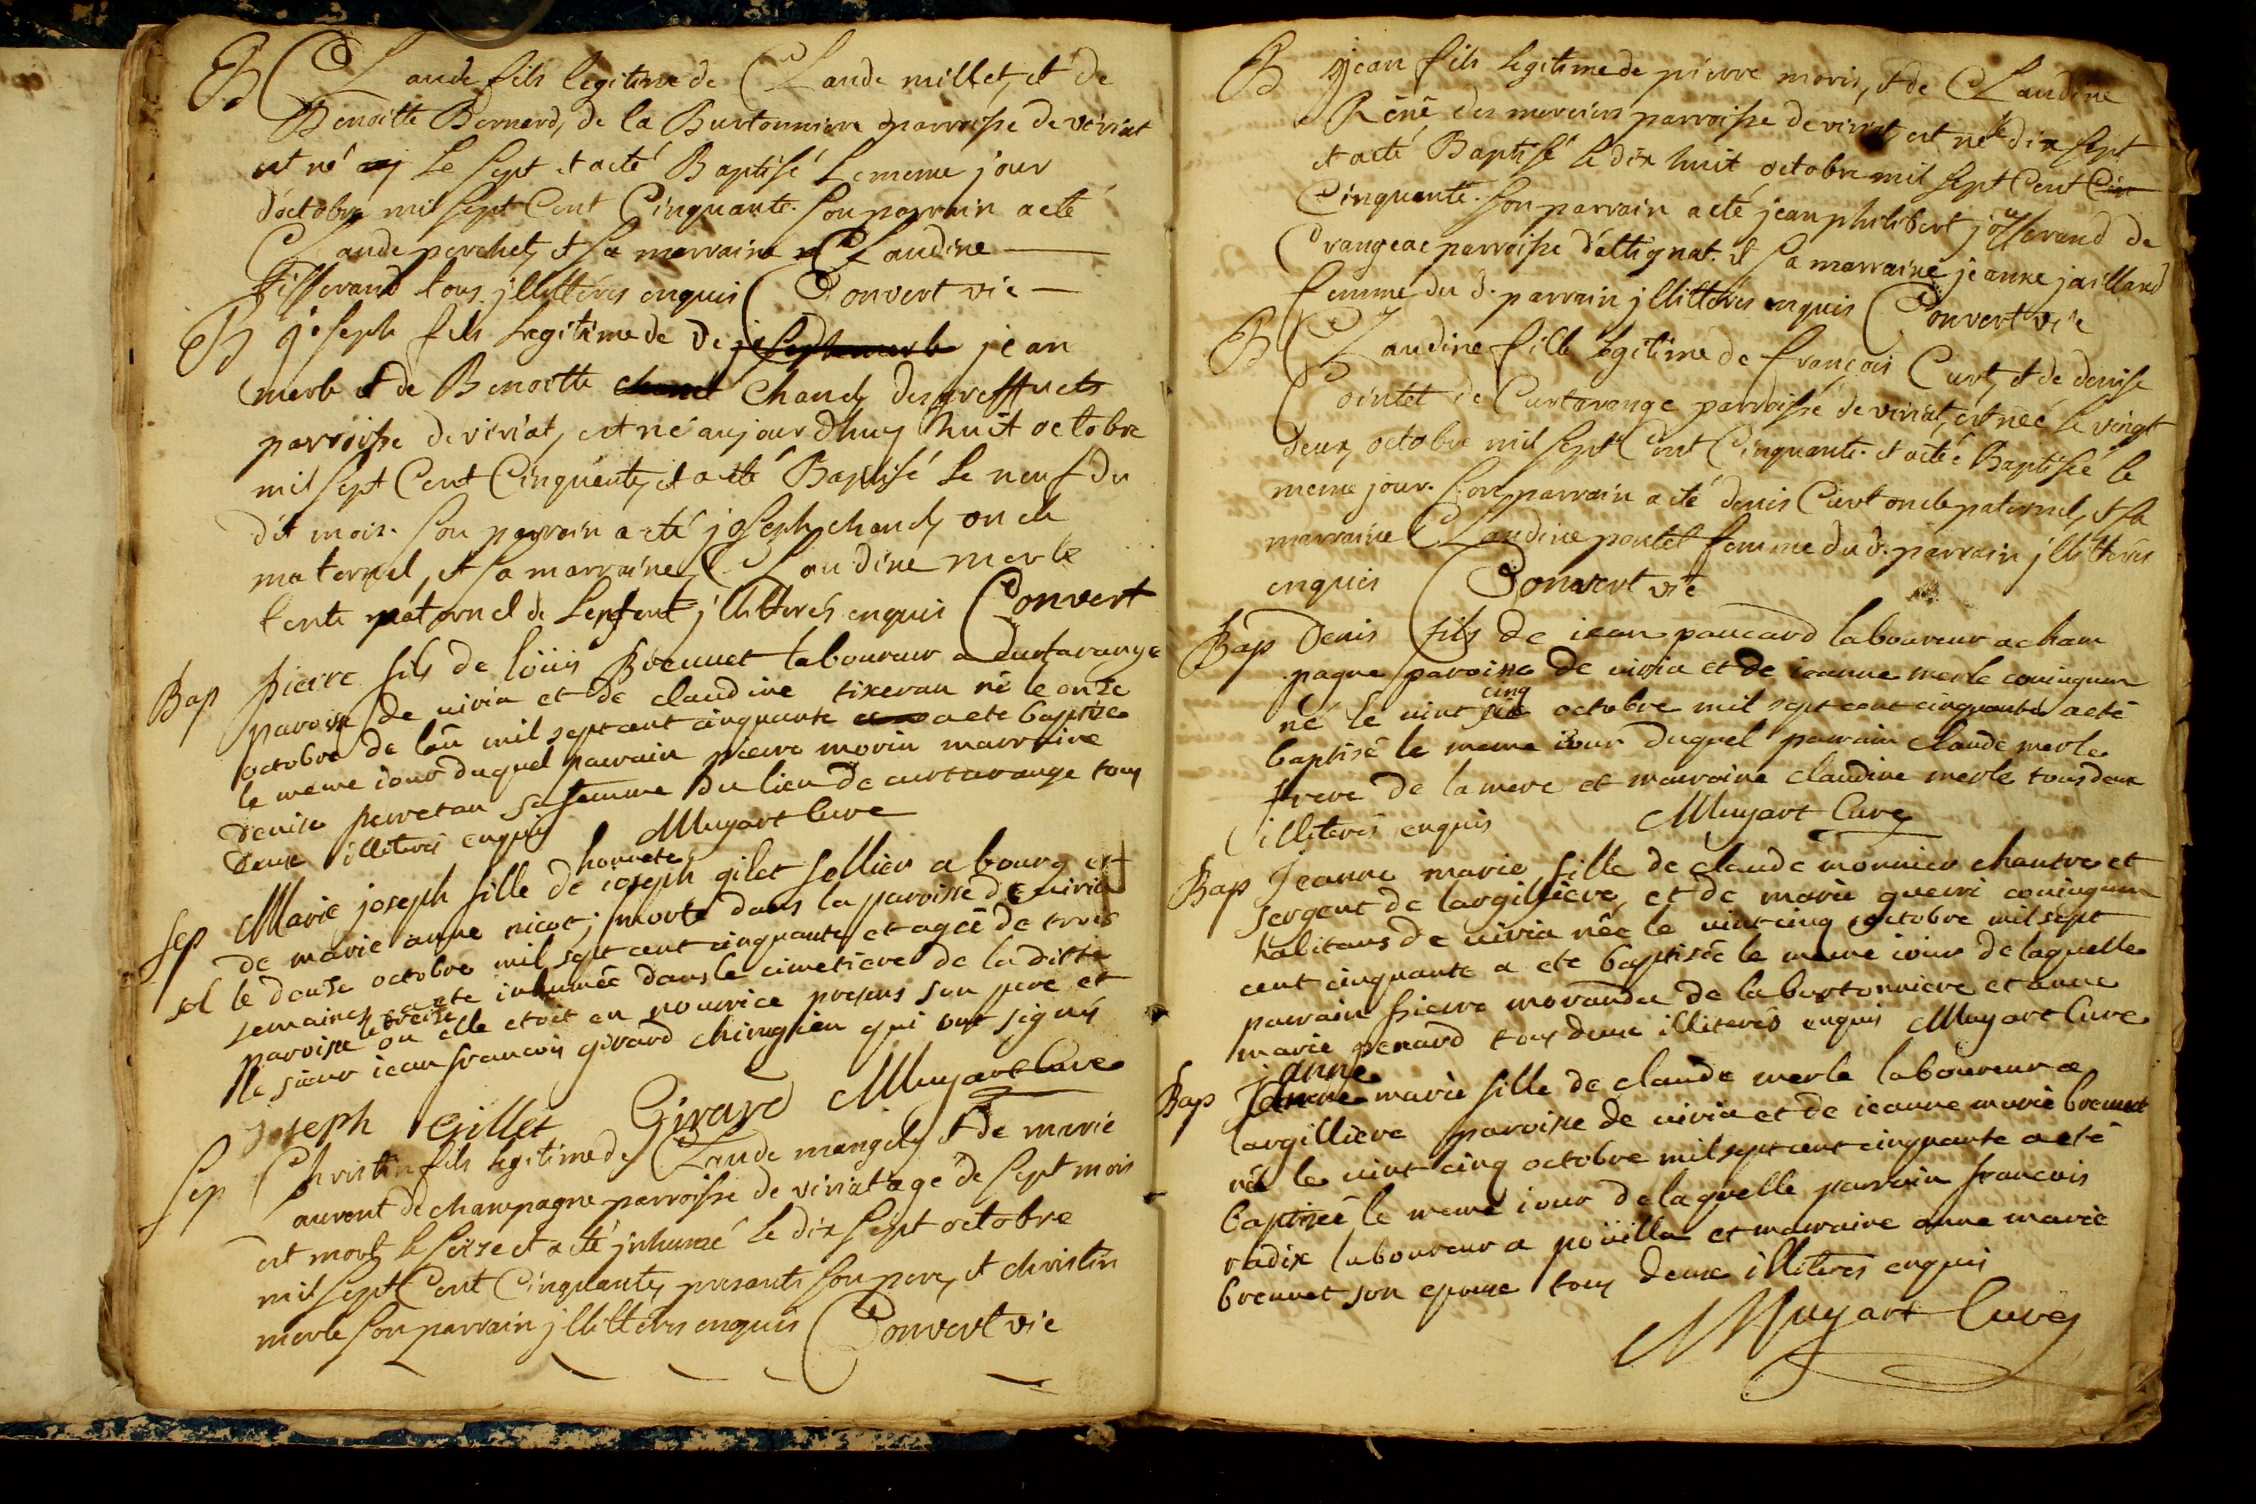 B Claude fils legitime de Claude millet, et de
Benoitte Bernard, de la Burtonniere parroisse de viriat
est né le sept et a eté Baptisé le meme jour
d'octobre mil sept Cent Cinquante. son parrain a eté
Claude perchet, et sa marraine Claudine
tisserand tous jllitterés enquis Convert vic
B joseph fils legitime de jean
merle et de Benoitte Chanel des greffets
parroisse de viriat, est né aujourdhuy huit octobre
mil sept Cent Cinquante, et a eté Baptisé le neuf du
dit mois. son parrain a eté joseph chanel oncle
maternel, et sa marraine Claudine merle
tente paternel de lenfent jllitterés enquis Convert
Bap pierre fils de löüis Brevuet laboureur a curtarange
paroisse de viria et de claudine tixeran né le onze
octobre de lan mil sept cent cinquante a ete baptize
le meme iour duquel parrain pierre morin marraine
denise perretan sa femme du lieu de curtarange tous
deux illiterés enquis Muyart Curé
honete
Sep Marie joseph fille de ioseph gilet sellier a bourg et
de marie anne nicot, morte dans la paroisse de viria
sol le douze octobre mil sept cent cinquante et agée de trois
semaines a ete inhumée dans le cimetiere de laditte
le treize
paroisse ou elle etoit en nourice presens son pere et
le sieur iean francois girard chirugien qui ont signés
joseph Gillet Girard Muyart Curé
Sep Christin fils legitime de Claude mangely et de marie
aurent de champagne parroisse de viriat agé de sept mois
est mort le seize et a eté jnhumé le dix sept octobre
mil sept Cent Cinquante, presents son pere, et christin
merle son parrain jllitterés enquis Convert vic
B jean fils legitime de pierre moris, et de Claudine
Réné des merciers parroisse de viriat, est né le dix sept
et a eté Baptisé le dix huit octobre mil sept Cent
Cinquante. son parrain a eté jean philibert josserand de
Crangeac parroisse d'attignat. et sa marraine jeanne jaillard
femme du d. parrain jllitterés enquis Convert vic
B Claudine fille legitime de françois Curt, et de denise
Cointet de Curtarange parroisse de viriat, est née le vingt
deux octobre mil sept Cent Cinquante. et a eté Baptisée le
meme jour. son parrain a eté denis Curt oncle paternel, et sa
marraine Claudine pontet femme du d. parrain jllitterés
enquis Convert vic
Bap Denis fils de iean paucard laboureur a cham
pagne paroisse de viria et de ieanne merle coniugum
cinq
né le vint octobre mil sept cent cinquante a eté
baptisé le meme iour duquel parrain claude merle
frere de la mere et marraine claudine merle tous deux
illiterés enquis Muyart Curé
Bap Jeanne marie fille de claude monnier chantre et
sergent de largilliere, et de marie guerri coniugum
habitans de viria née le vint cinq octobre mil sept
cent cinquante a ete baptisée le meme iour de laquelle
parrain pierre morandu de la burtonniere et anne
marie penard tous deux illiterés enquis Muyart Curé
janne
Bap marie fille de claude merle laboureur a
largilliere paroisse de viria et de ieanne marie brevuet
née le vint cinq octobre mil sept cent cinquante a eté
baptisée le meme iour de laquelle parrain francois
radix laboureur a poüilla et marraine anne marie
brevuet son epouse tous deux illiterés enquis
Muyart Curé